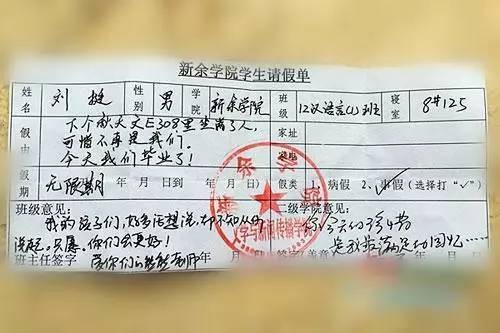 新余学院学生请假单
姓名 刘挺 性别 男 学院 新余学院 班级 12汉语言(1)班 寝室 8#125
假由 下个秋天文E308里坐满了人, 家址
可惜不再是我们。
今天我们毕业了! 电话
假期 无限期 年 月 日到 年 月 日 假类 1.病假 2.事假(选择打"√")
班级意见: 二级学院意见:
我的孩子们,好多话想说,却不知从何
说起。只愿你们会更好!
爱你们的 老师
是我最满足的回忆……
班主任签字 年 月 日 签字(盖章) 年 月 日
新余学院
文学与新闻传播学院